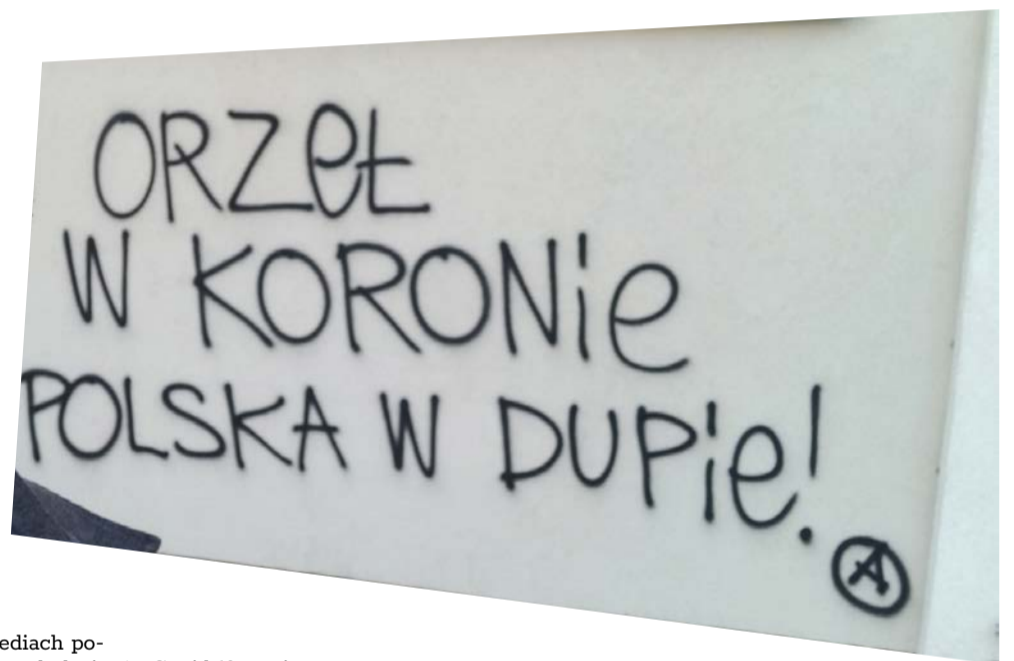 ORZeŁ
W KORONie
POLSKA W DUPie!
A
ediach po-